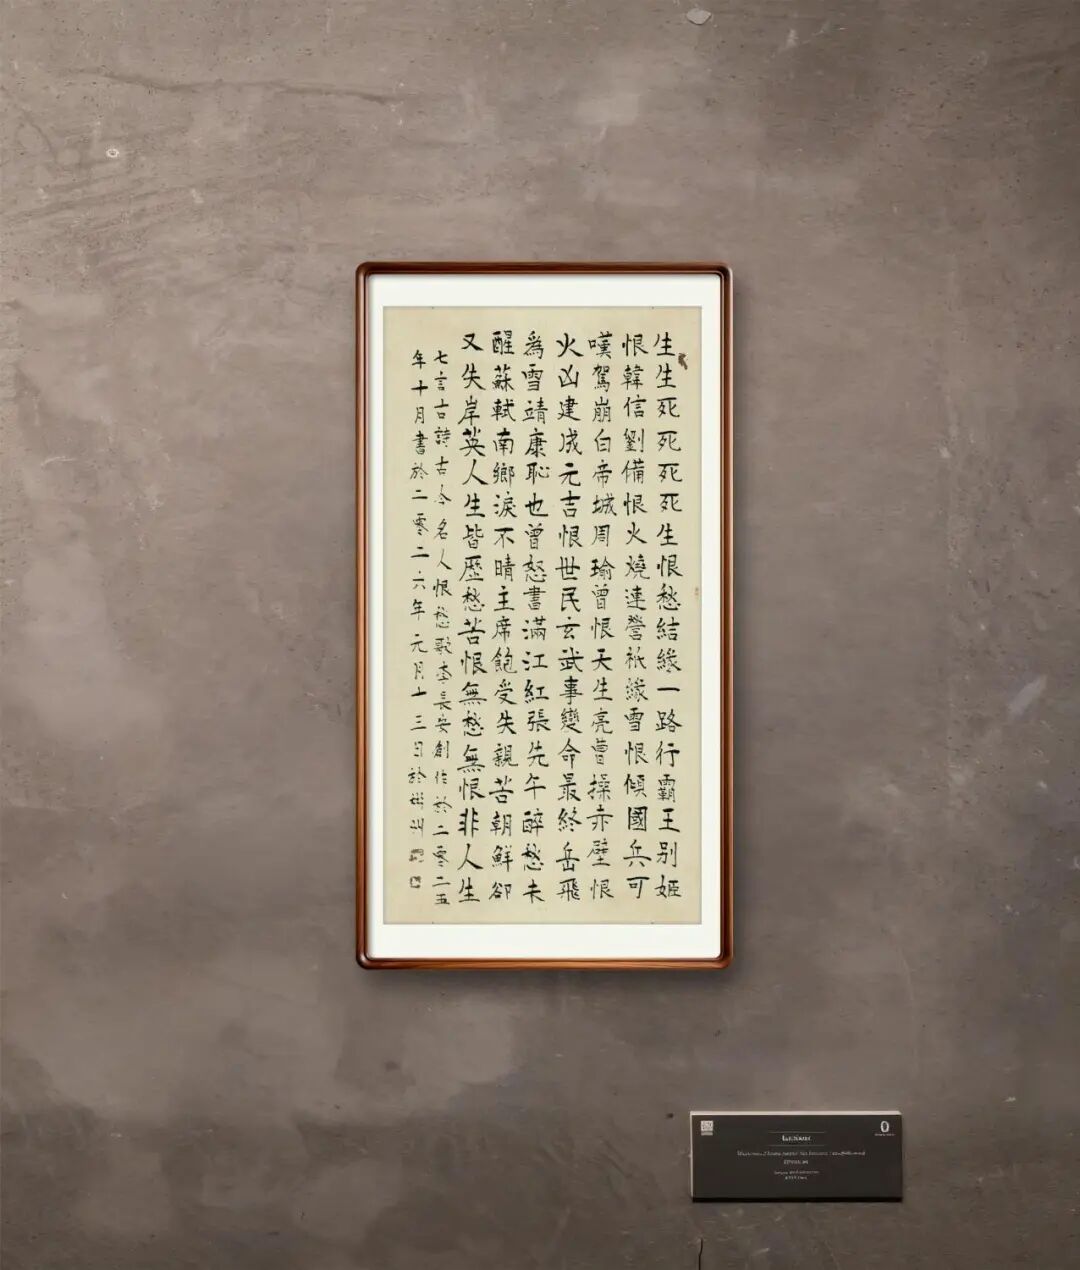 生生死死死死生恨愁結緣一路行霸王别姬
恨韓信劉備恨火燒連營祇緣雪恨傾國兵可
嘆駕崩白帝城周瑜曾恨天生亮曹操赤壁恨
火凶建成元吉恨世民玄武事變命最終岳飛
為雪靖康恥也曾怒書滿江紅張先午醉愁未
醒蘇軾南鄉淚不晴主席飽受失親苦朝鮮卻
又失岸英人生皆歷愁苦恨無愁無恨非人生
七言古詩古今名人恨愁歌李長安創作於二零二五
年十月書於二零二六年元月十三日於